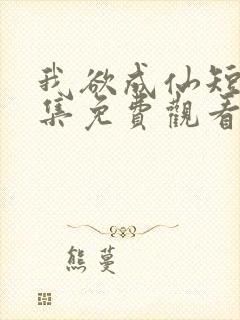 我欲成仙短
集免費觀看
熊蔓